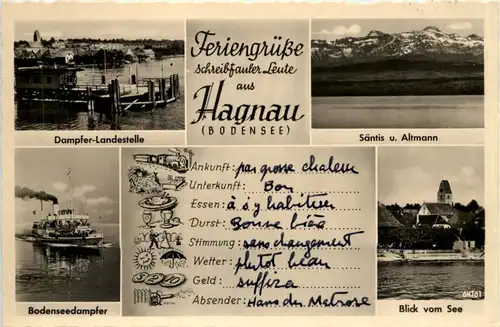 Feriengrüße
schreibfauler Leute
aus
Hagnau
(BODENSEE)
Dampfer-Landestelle
Säntis u. Altmann
Ankunft: par grosse chaleur
Unterkunft: Bon
Essen: à s'y habituer
Durst: Bonne bière
Stimmung: sans changement
Wetter: plutot beau
Geld: suffira
Absender: Hans der Metrose
Bodenseedampfer
Blick vom See